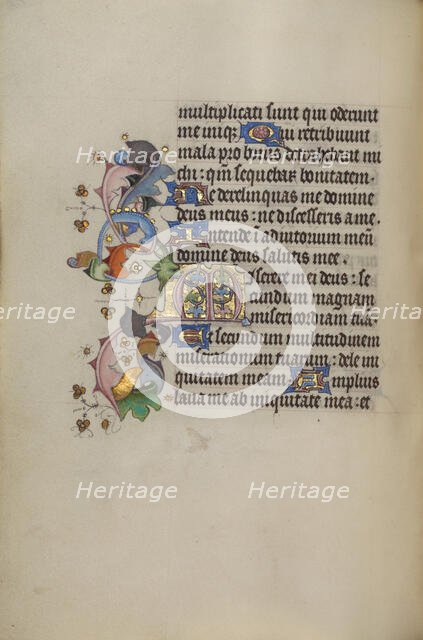 multiplicati sunt qui oderunt
me iniqꝫ Qui retribuunt
mala pro bonis detrahebant mi
chi: qm̄ sequebar bonitatem.
Ne derelinquas me domine
deus meus: ne discesseris a me.
Intende ī adiutorium meū
domine deus salutis mee.
Miserere mei deus: se
cundum magnam
misericordiam tuā.
Et secundum multitudinem
miserationum tuarum: dele ini
quitatem meam. Amplius
laua me ab iniquitate mea: et
Heritage
Heritage
Heritage
Heritage
Heritage
Heritage